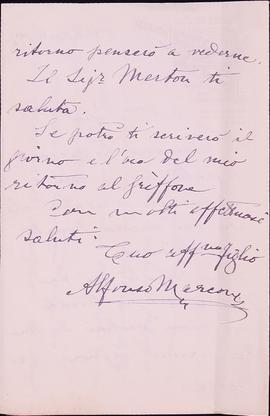 ritorno penserò a vederne.
Il Sigr. Merton ti
saluta.
Se potrò ti scriverò il
giorno e l'ora del mio
ritorno al Griffone
Con molti affettuosi
saluti:
Tuo affmo figlio
Alfonso Marconi